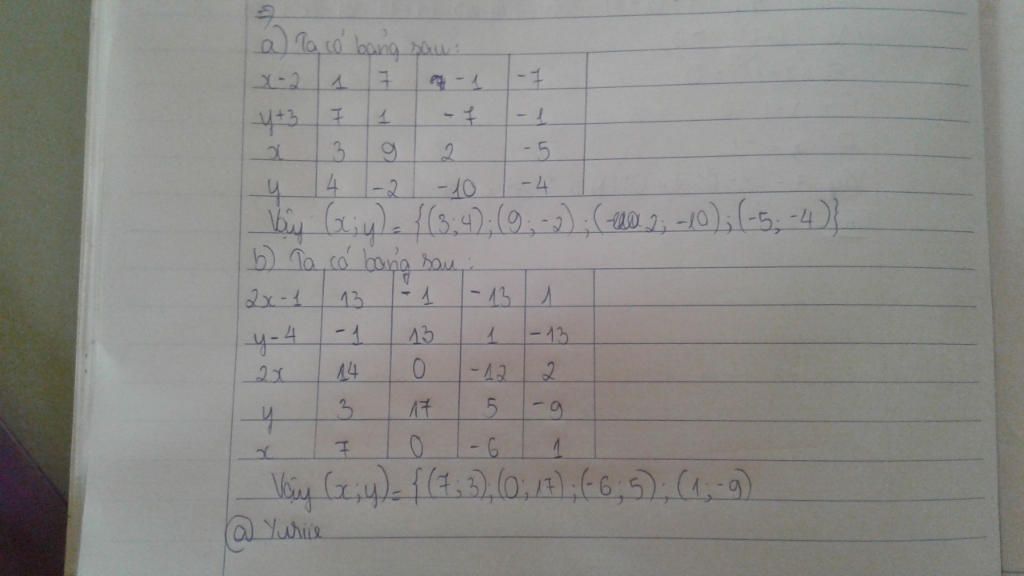 ⇒
a) Ta có bảng sau:
x-2 1 7 -1 -7
y+3 7 1 -7 -1
x 3 9 2 -5
y 4 -2 -10 -4
Vậy (x;y)= {(3;4);(9;-2);(2;-10);(-5;-4)}
b) Ta có bảng sau:
2x-1 13 -1 -13 1
y-4 -1 13 1 -13
2x 14 0 -12 2
y 3 17 5 -9
x 7 0 -6 1
Vậy (x;y)= {(7;3),(0;17);(-6;5);(1;-9)
@ Yuriie